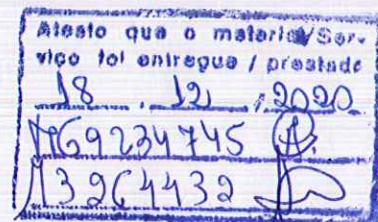 Atesto que o material/Ser-
viço foi entregue / prestado
18 . 12 . 2020
MG9234745
M3964432